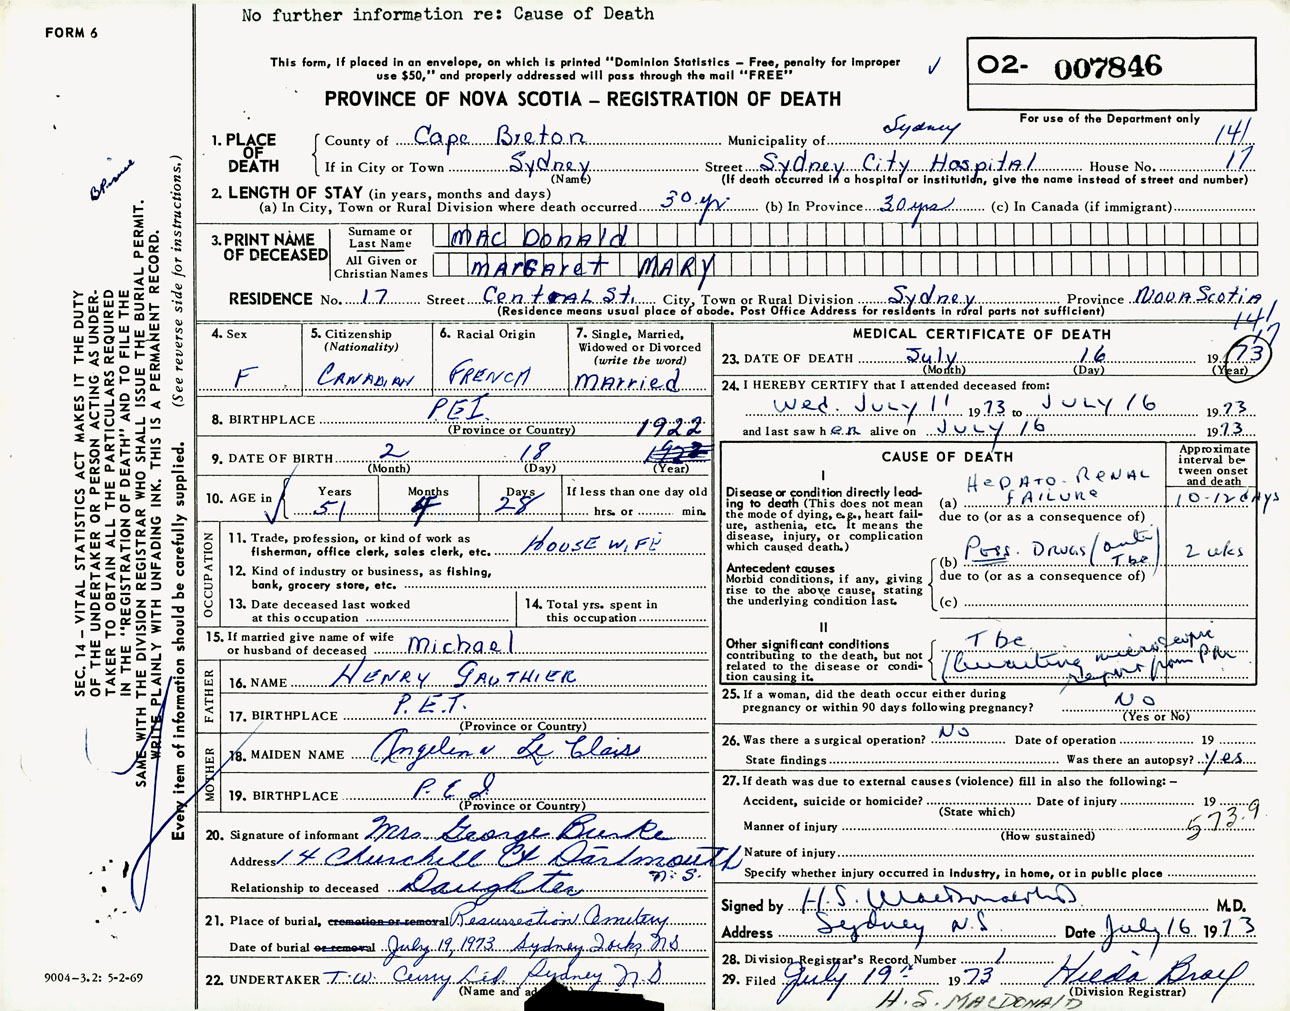 No further information re: Cause of Death
FORM 6
This form, if placed in an envelope, on which is printed "Dominion Statistics – Free, penalty for improper
use $50," and properly addressed will pass through the mail "FREE"
O2- 007846
PROVINCE OF NOVA SCOTIA – REGISTRATION OF DEATH
For use of the Department only
1. PLACE OF DEATH County of Cape Breton Municipality of Sydney 141
If in City or Town Sydney Street Sydney City Hospital House No. 17
(Name) (If death occurred in a hospital or institution, give the name instead of street and number)
2. LENGTH OF STAY (in years, months and days)
(a) In City, Town or Rural Division where death occurred 30 yr. (b) In Province 30 yrs (c) In Canada (if immigrant)
3. PRINT NAME OF DECEASED
Surname or Last Name MAC DONALD
All Given or Christian Names MARGARET MARY
RESIDENCE No. 17 Street Central St. City, Town or Rural Division Sydney Province NOVA SCOTIA
(Residence means usual place of abode. Post Office Address for residents in rural parts not sufficient)
141
17
4. Sex
F
5. Citizenship
(Nationality)
CANADIAN
6. Racial Origin
FRENCH
7. Single, Married,
Widowed or Divorced
(write the word)
Married
8. BIRTHPLACE PEI
(Province or Country)
1922
9. DATE OF BIRTH 2 18
(Month) (Day) (Year)
10. AGE in Years Months Days If less than one day old
51 4 28 hrs. or min.
OCCUPATION
11. Trade, profession, or kind of work as
fisherman, office clerk, sales clerk, etc. HOUSE WIFE
12. Kind of industry or business, as fishing,
bank, grocery store, etc.
13. Date deceased last worked
at this occupation
14. Total yrs. spent in
this occupation
15. If married give name of wife
or husband of deceased Michael
FATHER
16. NAME HENRY GAUTHIER
17. BIRTHPLACE P.E.I.
(Province or Country)
MOTHER
18. MAIDEN NAME Angelina Le Clair
19. BIRTHPLACE P.E.I
(Province or Country)
20. Signature of informant Mrs. George Burke
Address 14 Churchill Ct Dartmouth
N.S.
Relationship to deceased Daughter
21. Place of burial, cremation or removal Resurrection Cemetery
Date of burial or removal July 19, 1973 Sydney Forks, NS
22. UNDERTAKER T.W. Curry Ltd. Sydney N.S
(Name and ad
MEDICAL CERTIFICATE OF DEATH
23. DATE OF DEATH July 16 19 73
(Month) (Day) (Year)
24. I HEREBY CERTIFY that I attended deceased from:
Wed. JULY 11 1973 to JULY 16 1973
and last saw her alive on JULY 16 1973
CAUSE OF DEATH
Approximate interval between onset and death
I
Disease or condition directly leading to death (This does not
mean the mode of dying, e.g., heart failure, asthenia, etc. It means the
disease, injury, or complication
which caused death.)
(a) HEPATO-RENAL FAILURE 10-12 days
due to (or as a consequence of)
(b) Poss. DRUGS (anti Tbc) 2 wks
due to (or as a consequence of)
(c)
Antecedent causes
Morbid conditions, if any, giving
rise to the above cause, stating
the underlying condition last.
II
Other significant conditions
contributing to the death, but not
related to the disease or condition causing it.
Tbc
(Awaiting microscopic
report from
25. If a woman, did the death occur either during
pregnancy or within 90 days following pregnancy? NO
(Yes or No)
26. Was there a surgical operation? No Date of operation 19
State findings Was there an autopsy? yes
27. If death was due to external causes (violence) fill in also the following: –
Accident, suicide or homicide? Date of injury 19
(State which)
Manner of injury 573.9
(How sustained)
Nature of injury
Specify whether injury occurred in industry, in home, or in public place
Signed by H.S. MacDonald M.D.
Address Sydney N.S Date July 16 1973
28. Division Registrar's Record Number 1
29. Filed July 19th 1973 Hilda Bray
(Division Registrar)
H. S. MACDONALD
SEC. 14 – VITAL STATISTICS ACT MAKES IT THE DUTY
OF THE UNDERTAKER OR PERSON ACTING AS UNDER-
TAKER TO OBTAIN ALL THE PARTICULARS REQUIRED
IN THE "REGISTRATION OF DEATH" AND TO FILE THE
SAME WITH THE DIVISION REGISTRAR WHO SHALL ISSUE THE BURIAL PERMIT.
WRITE PLAINLY WITH UNFADING INK. THIS IS A PERMANENT RECORD.
Every item of information should be carefully supplied. (See reverse side for instructions.)
9004–3.2: 5-2-69